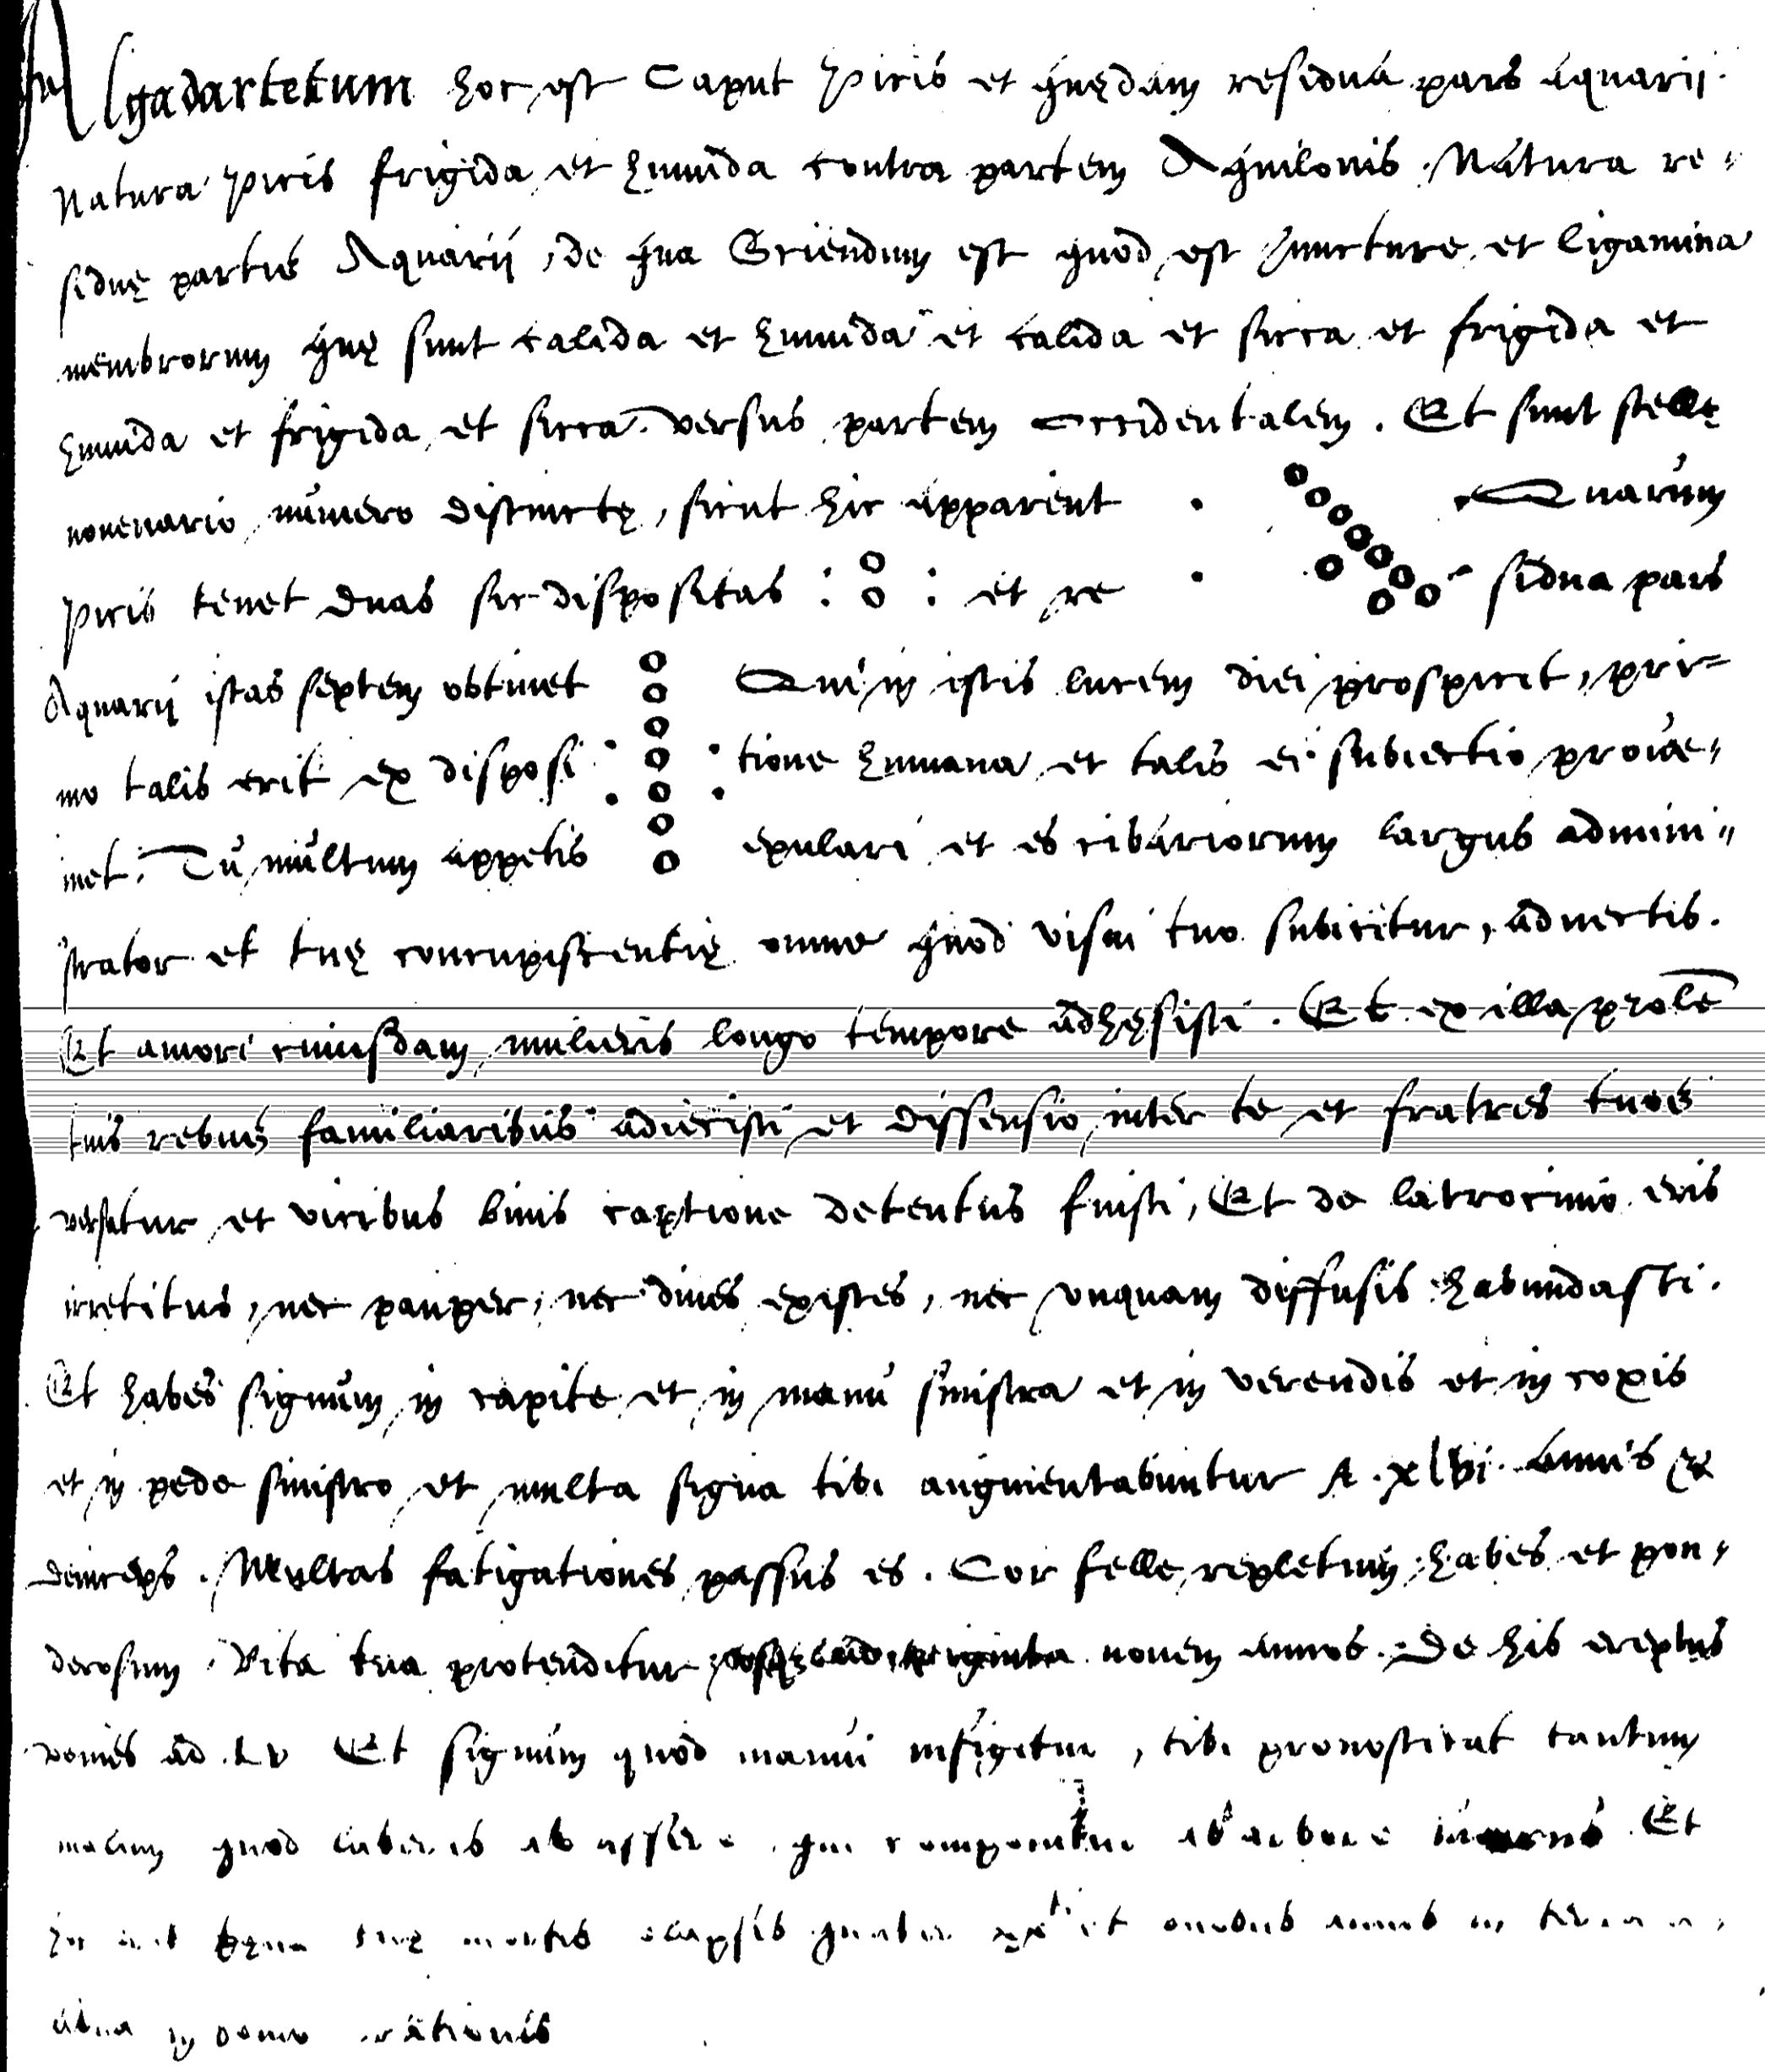 Algadartetum hoc est Caput Piscis et quędam residua pars aquarii.
Natura Piscis frigida et humida contra partem Aquilonis. Natura re-
siduę partis Aquarii, de qua Sciendum est quod est Juncture et ligamina
membrorum quę sunt calida et humida et calida et sicca et frigida et
humida et frigida et sicca. versus partem occidentalem. Et sunt stellę
novenario numero distinctę, sicut hic apparent Quarum
Piscis tenet duas sic dispositas : : et re sidua pars
Aquarii istas septem obtinet Qui in istis lucem diei prospicit, pri-
mo talis erit ex disposi tione humana et talis ei subiectio prove-
niet. Tu multum appetis epulari et es cibariorum largus admini-
strator et tuę concupiscentię omne quod visui tuo subicitur, advertis.
Et amori cuiusdam mulieris longo tempore adhęsisti. Et ex illa prolē
tuis rebus familiaribus adiecisti et dissensio inter te et fratres tuos
versatur et vicibus binis captione detentus fuisti, Et de latrocinio eris
irretitus, nec pauper, nec dives existes, nec unquam diffusis habundasti.
Et habes signum in capite et in manu sinistra et in verendis et in coxis
et in pede sinistro et multa signa tibi augmentabuntur A. xlvi. annis &
deinceps. Multas fatigationes passus es. Cor felle repletum habes et pon-
derosum. Vita tua protenditur novem annos. De his ereptus
venies ad LV Et signum quod manui infigetur, tibi pronosticat tantum
malum quod ab qui componitur ab arbore Et
tuę mortis elapsis et annis in
in domo